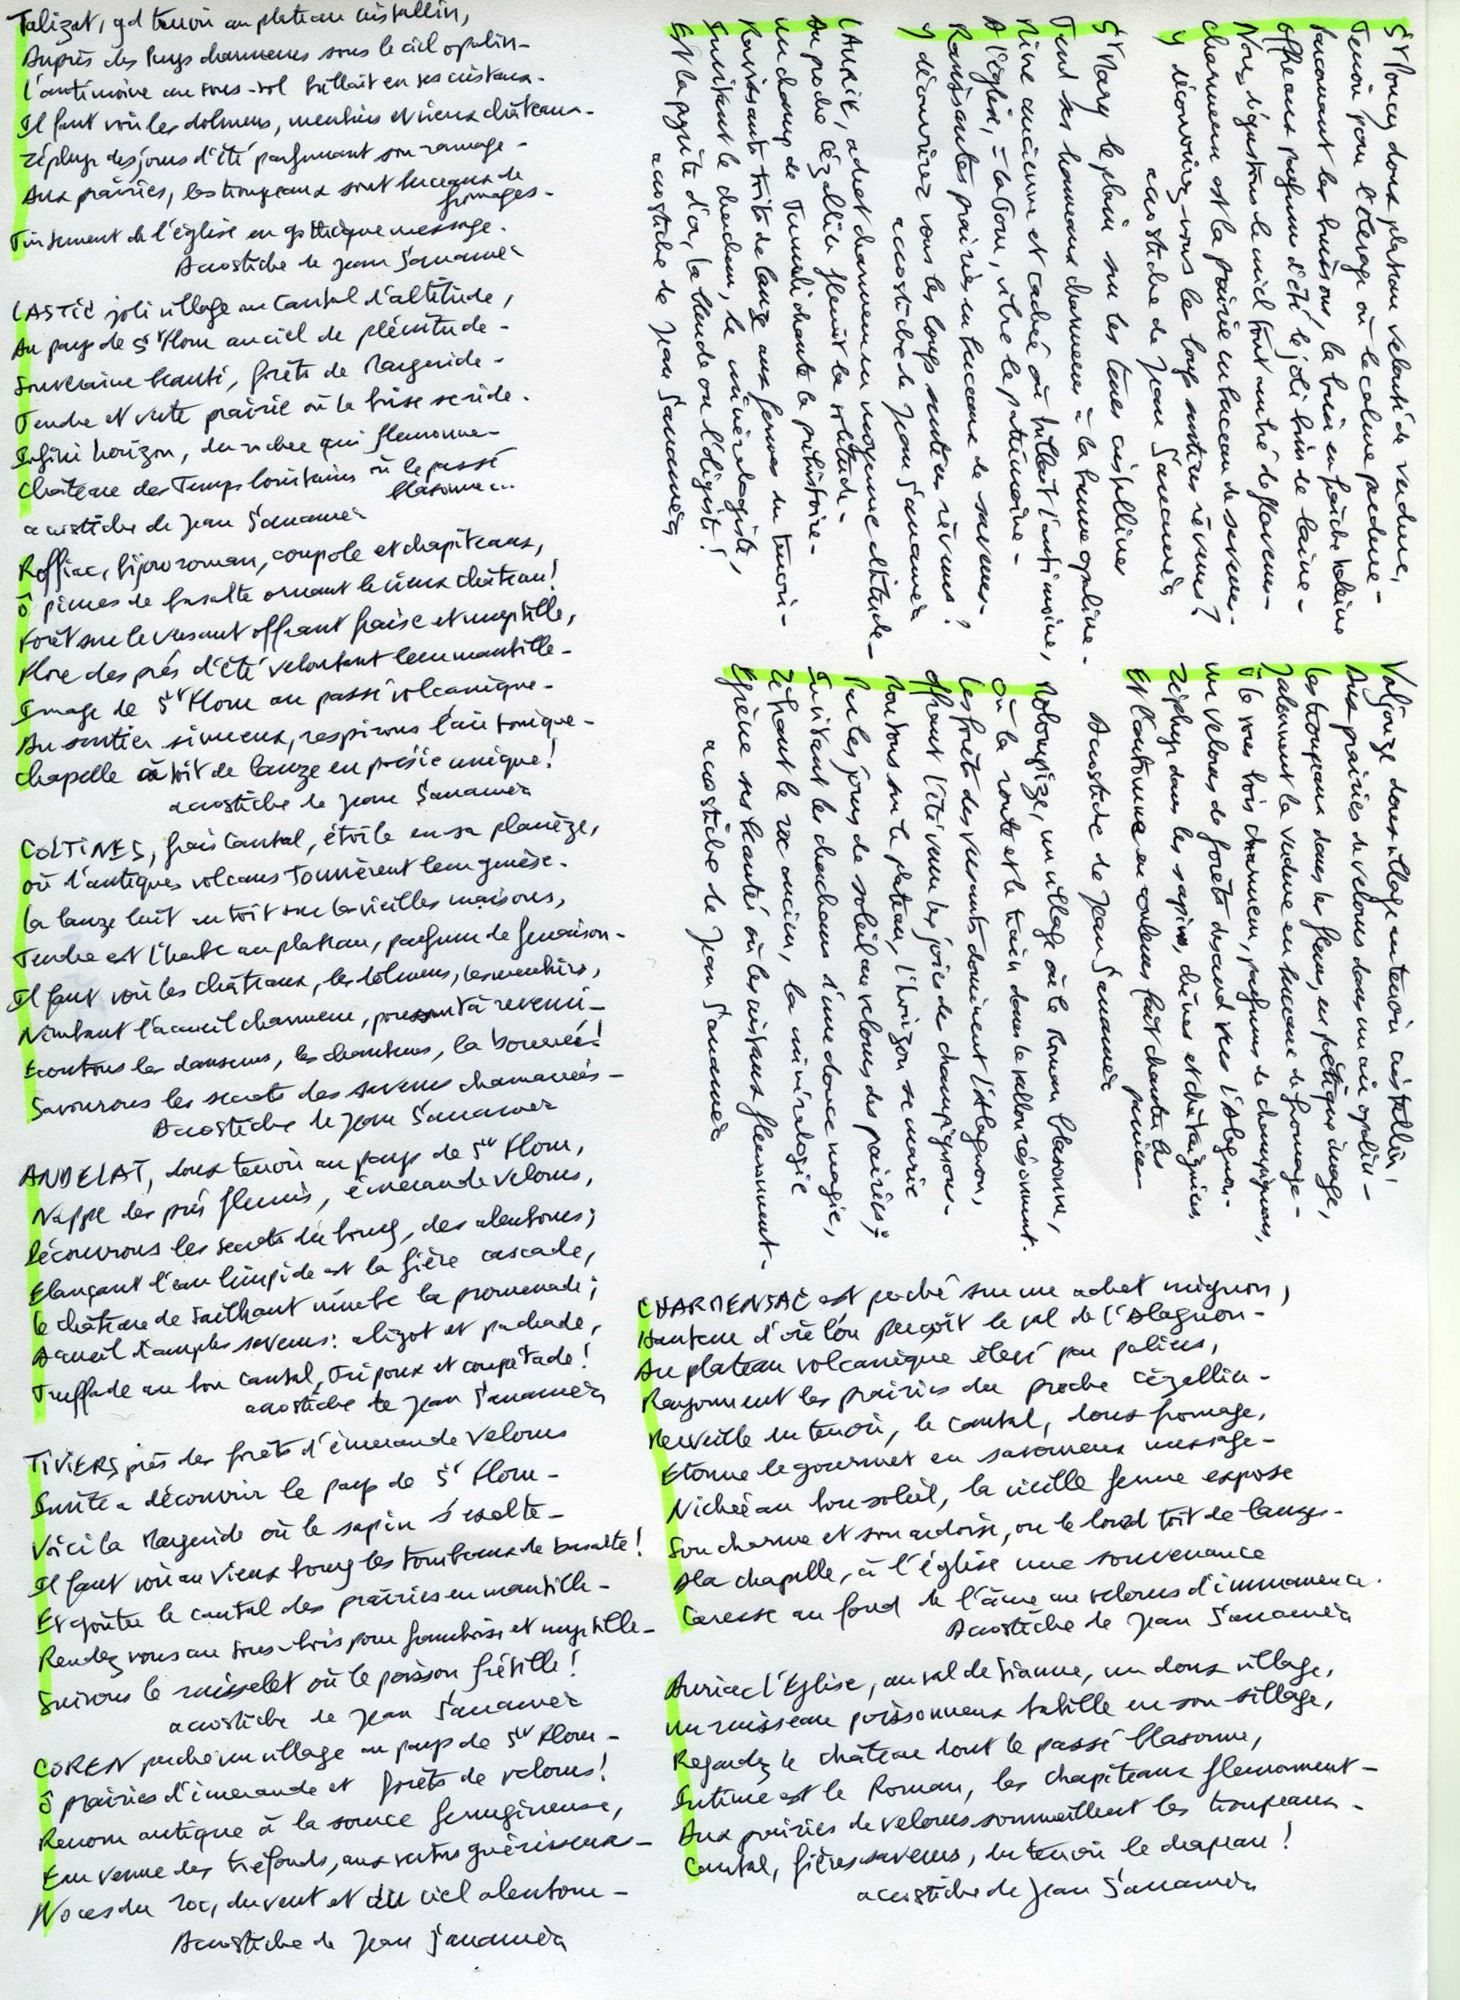 Talizat, gd terroir au plateau cristallin,
Auprès des Puys charmeurs sous le ciel opalin -
L'antimoine au sous-sol brillait en ses cristaux -
Il faut voir les dolmens, menhirs et vieux châteaux -
Zéphyr des jours d'été parfumant son ramage -
Aux prairies, les troupeaux sont berceaux de fromages -
Tintement de l'église en gothique message -
Acrostiche de Jean Sanamer
LASTIC joli village au Cantal d'altitude,
Au pays de St Flour au ciel de plénitude -
Souveraine beauté, forêts de Margeride -
Tendre et verte prairie où la brise se ride -
Infini horizon, du rocher qui fleuronne -
Château des Temps lointains où le passé blasonne...
acrostiche de Jean Sanamer
Roffiac, bijou roman, coupole et chapiteaux,
Ô pierres de basalte ornant le vieux château !
Forêt sur le versant offrant fraise et myrtille,
Flore des prés d'été veloutant leur mantille -
Image de St Flour au passé volcanique -
Au sentier sinueux, respirons l'air tonique -
Chapelle à toit de lauze en poésie unique !
acrostiche de Jean Sanamer
COLTINES, frais Cantal, étoile en sa planèze,
Où d'antiques volcans Tonnèrent leur genèse -
La lauze luit en toit sur les vieilles maisons,
Tendre est l'herbe au plateau, parfum de fenaison -
Il faut voir les châteaux, les dolmens, les menhirs,
Nimbant l'accueil charmeur, pressant à revenir -
Ecoutons les danseurs, les chanteurs, la bourrée !
Savourons les secrets des saveurs chamarrées -
Acrostiche de Jean Sanamer
ANDELAT, doux terroir au pays de St Flour,
Nappe des prés fleuris, émeraude velours,
Découvrons les secrets du bourg, des alentours ;
Elançant l'eau limpide est la fière cascade,
Le château de Sailhant nimbe la promenade ;
Accueil d'amples saveurs : aligot et pachade,
Truffade au bon cantal, Tripoux et coupétade !
acrostiche de Jean Sanamer
TIVIERS près des forêts d'émeraude velours
Invite à découvrir le pays de St Flour -
Voici la Margeride où le sapin s'exalte -
Il faut voir au vieux bourg les tombeaux de basalte !
Et goûter le cantal des prairies en mantille -
Rendez vous au sous-bois pour framboise et myrtille -
Suivons le ruisselet où le poisson frétille !
acrostiche de Jean Sanamer
COREN perché un village au pays de St Flour -
Ô prairies d'émeraude et forêts de velours !
Renom antique à la source ferrugineuse,
Eau venue des tréfonds, aux vertus guérisseuses -
Noces du roc, du vent et du ciel alentour -
Acrostiche de Jean Sanamer
St Poncy doux plateau velouté de verdure,
Terroir pour l'élevage où le calme perdure -
Parcourant les buissons, la brise en fraîche haleine
Offre aux parfums d'été le joli brin de laine -
Nous dégustons le miel tout ambré de flaveurs -
Charmeur est la prairie en berceau de saveurs -
Y découvrirez-vous les longs sentiers rêveurs ?
acrostiche de Jean Sanamer
St Mary le plain sur les terres cristallines
Tend ses hameaux charmeurs à la brume opaline -
Mine ancienne et cachée où brillait l'antimoine,
A l'église, vibre le patrimoine -
Ravissantes prairies en berceaux de saveurs -
Y découvrirez vous les longs sentiers rêveurs ?
acrostiche de Jean Sanamer
LAURIE, adret charmeur en moyenne altitude -
Au proche Cézallier fleurit la solitude -
Un champ de Tumuli chante la préhistoire -
Ravissants toits de lauze aux fermes du terroir -
Invitant le chercheur, le minéralogiste,
Est la pyrite d'or, la blende ou l'
acrostiche de Jean Sanamer
Valjouze doux village en terroir cristallin,
Aux prairies de velours dans un air opalin -
Les troupeaux dans les fleurs, en poétique image,
Jalonnent la verdure en berceau de fromage -
Ô les sous bois charmeurs, parfumés de champignons,
Un velours de forêts descend vers l'Alagnon -
Zéphyr dans les sapins, chênes et châtaigniers
Et l'automne en couleurs fait chanter les pruniers -
Acrostiche de Jean Sanamer
Molompize, un village où le Roman blasonne,
Où la route et le train dans le vallon résonnent.
Les forêts des versants dominent l'Alagnon,
Offrant l'été venu les joies de champignons -
Moutons sur le plateau, l'horizon se marie
Par les jours de soleil au velours des prairies ;
Invitant les chercheurs d'une douce magie,
Zébrant le roc ancien, la minéralogie
Egrène ses beautés où les cristaux fleuronnent -
acrostiche de Jean Sanamer
CHARMENSAC est perché sur un adret mignon,
Hauteur d'où l'on perçoit le val de l'Alagnon -
Au plateau volcanique élevé par paliers,
Rayonnent les prairies du proche Cézallier -
Merveille du terroir, le cantal, doux fromage,
Etonne le gourmet en savoureux message -
Nichée au bon soleil, la vieille ferme expose
Son charme et son ardoise, ou le lourd toit de lauzes -
A la chapelle, à l'église une souvenance
Caresse au fond de l'âme au velours d'immanence.
Acrostiche de Jean Sanamer
Auriac l'Eglise, au val de Sianne, un doux village,
Un ruisseau poissonneux babille en son sillage,
Regardez le château dont le passé blasonne,
Intime est le Roman, les chapiteaux fleuronnent -
Aux prairies de velours sommeillent les troupeaux -
Cantal, fières saveurs, du terroir le drapeau !
acrostiche de Jean Sanamer